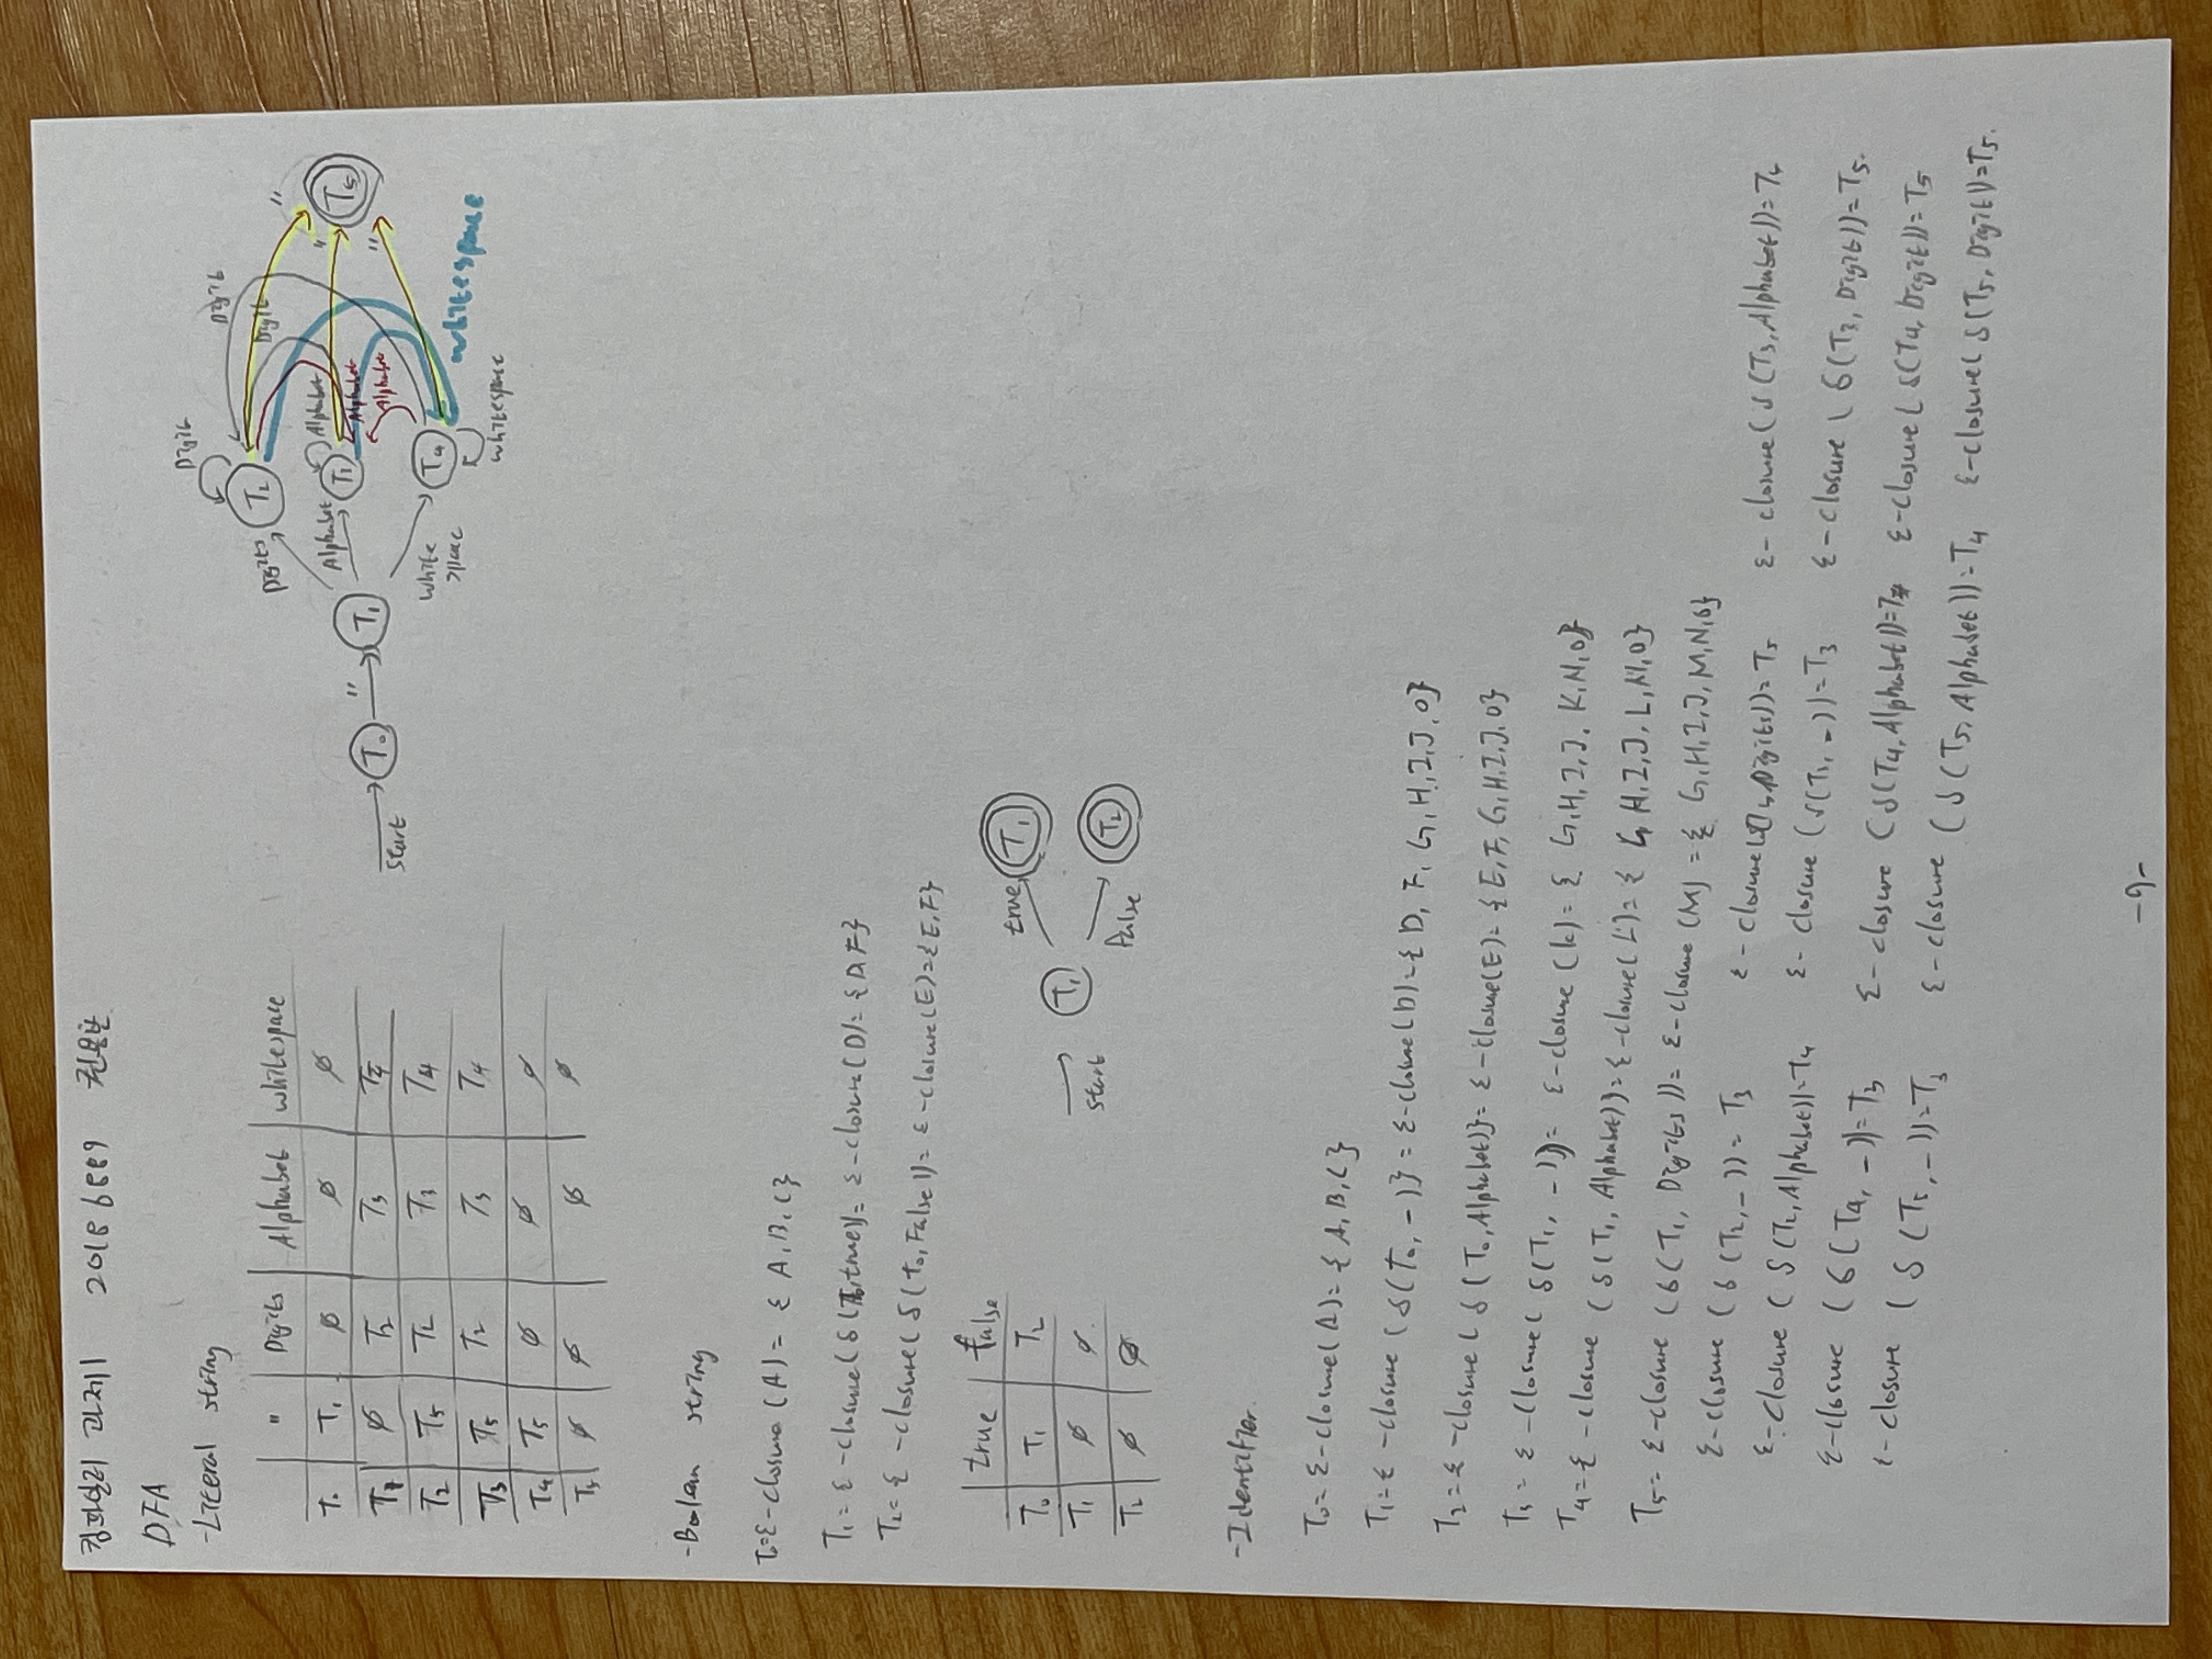 컴파일러 과제1 20186889
DFA
-Literal string
" Digits Alphabet whitespace
T₀ T₁ ∅ ∅ ∅
T₁ ∅ T₂ T₃ T₄
T₂ T₅ T₂ T₃ T₄
T₃ T₅ T₂ T₃ T₄
T₄ T₅ ∅ ∅ ∅
T₅ ∅ ∅ ∅ ∅
Digit
Digit
Digit
Digits
T₂
"
Alphabet
T₃
Alphabet
"
T₅
start
T₀
"
T₁
Alphabet
Alphabet
"
white
space
T₄
whitespace
whitespace
-Bolean string
T₀=ε-closure (A) = { A, B, C}
T₁ = ε -closure( δ (T₀, true))= ε-closure(D)= {D, F}
T₂= ε -closure( δ ( t₀, False))= ε-closure(E)={E, F}
true false
T₀ T₁ T₂
T₁ ∅ ∅
T₂ ∅ ∅
start
T₁
true
T₁
False
T₂
-Identifier.
T₀= ε-closure(A)= { A, B, C }
T₁= ε -closure ( δ(T₀, _ )} = ε-closure(D)={ D, F, G, H, I, J, O}
T₂ = ε -closure ( δ ( T₀, Alphabet)}= ε-closure(E)= { E, F, G, H, I, J, O}
T₃ = ε -closure( δ(T₁, _ ))= ε-closure (K)= { G, H, I, J, K, N, O}
T₄= ε -closure ( δ(T₁, Alphabet))= ε-closure( L)= { G, H, I, J, L, N, O}
T₅= ε-closure (δ( T₁, Digits ))= ε-closure (M) = { G, H, I, J, M, N, O}
ε-closure ( δ (T₂, _ ))= T₃ ε-closure(δ(T₂, Digits))= T₅ ε- closure( δ (T₃, Alphabet))= T₄
ε-closure ( δ (T₂, Alphabet))=T₄ ε- closure (δ(T₃, _ ))=T₃ ε-closure ( δ(T₃, Digit))=T₅.
ε-closure ( δ(T₄, _ ))=T₃ ε-closure ( δ(T₄, Alphabet))=T₄ ε-closure ( δ(T₄, Digit))= T₅
ε-closure ( δ (T₅, _ ))=T₃ ε-closure ( δ (T₅, Alphabet ))=T₄ ε-closure( δ(T₅, Digit))=T₅.
-9-